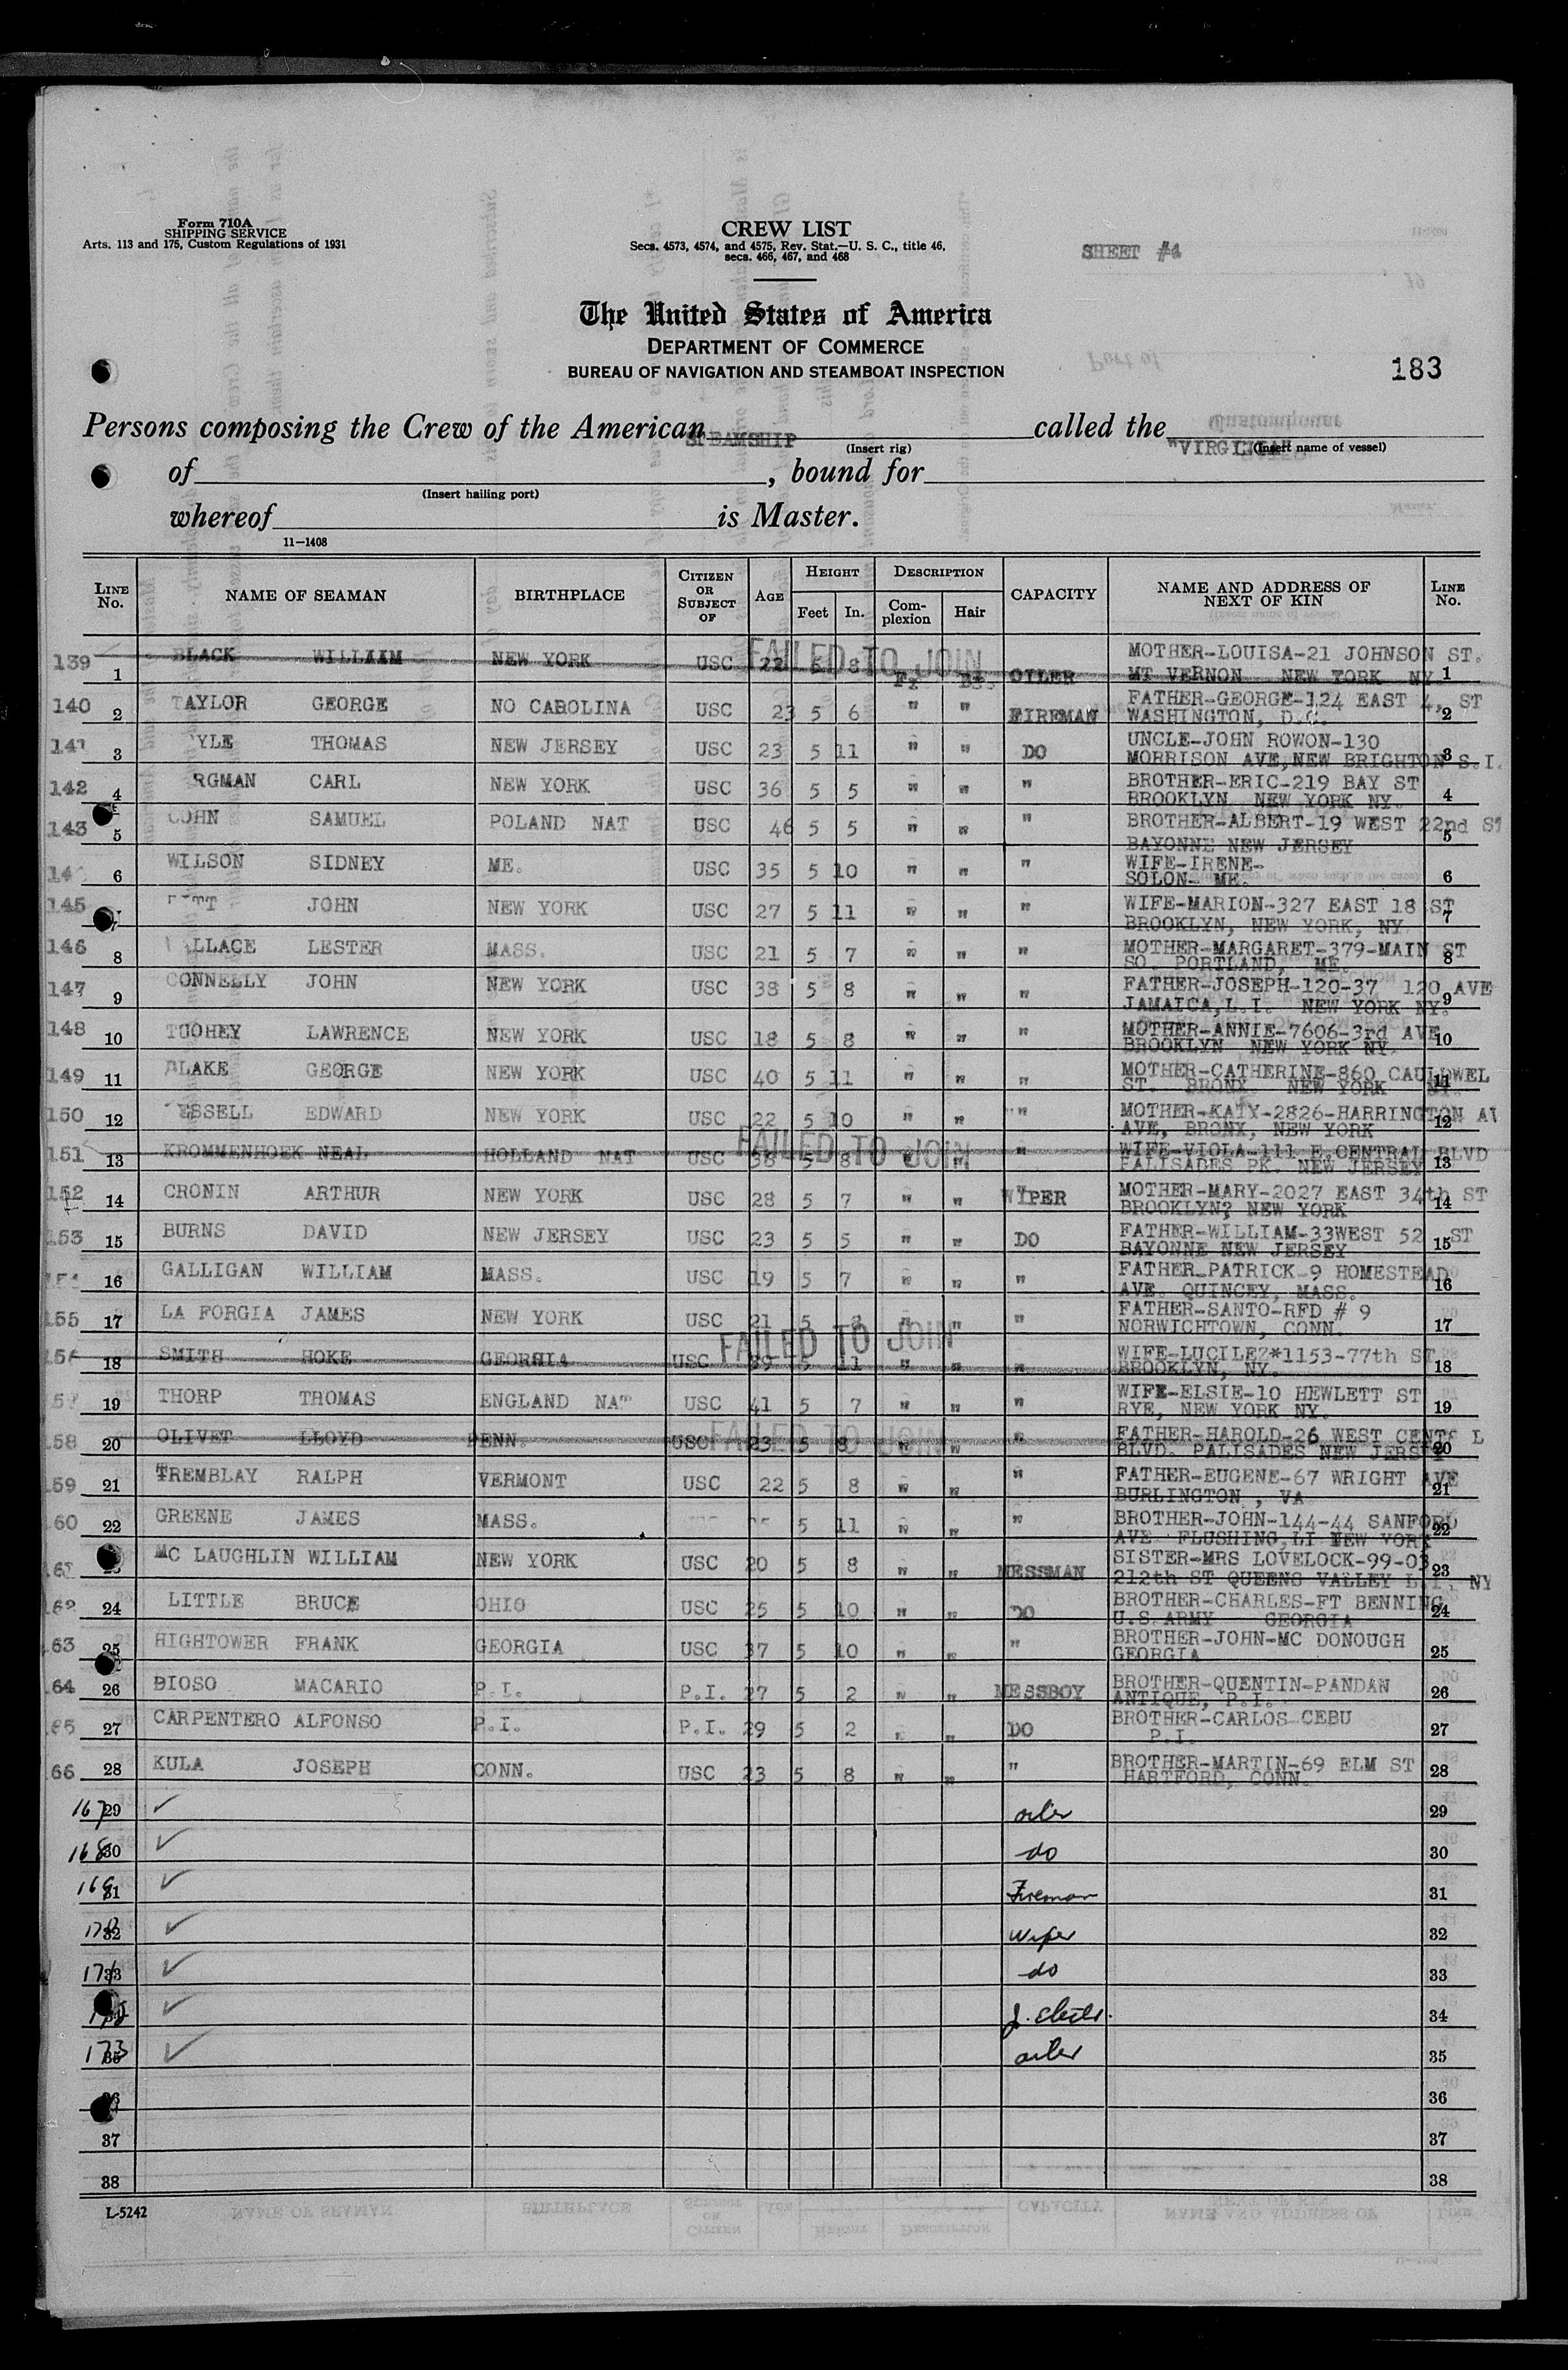 Form 710A
SHIPPING SERVICE
Arts. 113 and 175, Custom Regulations of 1931
CREW LIST
Secs. 4573, 4574, and 4575, Rev. Stat.—U. S. C., title 46,
secs. 466, 467, and 468
SHEET #4
The United States of America
DEPARTMENT OF COMMERCE
BUREAU OF NAVIGATION AND STEAMBOAT INSPECTION
183
Persons composing the Crew of the American STEAMSHIP called the "VIRGINIA"
(Insert rig) (Insert name of vessel)
of , bound for
(Insert hailing port)
whereof is Master.
11—1408
LINE No. NAME OF SEAMAN BIRTHPLACE CITIZEN OR SUBJECT OF AGE HEIGHT Feet In. DESCRIPTION Com-plexion Hair CAPACITY NAME AND ADDRESS OF NEXT OF KIN LINE No.
FAILED TO JOIN
139 1 BLACK WILLIAM NEW YORK USC 22 5 8 OILER MOTHER-LOUISA-21 JOHNSON ST. 1
MT VERNON NEW YORK NY.
140 2 TAYLOR GEORGE NO CAROLINA USC 23 5 6 " " FIREMAN FATHER-GEORGE-124 EAST 4, ST 2
WASHINGTON, D.C.
141 3 YLE THOMAS NEW JERSEY USC 23 5 11 " " DO UNCLE-JOHN ROWON-130 3
MORRISON AVE,NEW BRIGHTON S.I.
142 4 RGMAN CARL NEW YORK USC 36 5 5 " " " BROTHER-ERIC-219 BAY ST 4
BROOKLYN NEW YORK NY.
143 5 COHN SAMUEL POLAND NAT USC 46 5 5 " " " BROTHER-ALBERT-19 WEST 22nd ST 5
BAYONNE NEW JERSEY
6 WILSON SIDNEY ME. USC 35 5 10 " " " WIFE-IRENE- 6
SOLON- ME.
145 7 JOHN NEW YORK USC 27 5 11 " " " WIFE-MARION-327 EAST 18 ST 7
BROOKLYN, NEW YORK, NY
146 8 ALLACE LESTER MASS. USC 21 5 7 " " " MOTHER-MARGARET-379-MAIN ST 8
SO. PORTLAND, ME.
147 9 CONNELLY JOHN NEW YORK USC 38 5 8 " " " FATHER-JOSEPH-120-37 120 AVE 9
JAMAICA,L.I. NEW YORK NY.
148 10 TUOHEY LAWRENCE NEW YORK USC 18 5 8 " " " MOTHER-ANNIE-7606-3rd AVE 10
BROOKLYN NEW YORK NY.
149 11 BLAKE GEORGE NEW YORK USC 40 5 11 " " " MOTHER-CATHERINE-860 CAULDWEL 11
ST. BRONX NEW YORK NY.
150 12 ESSELL EDWARD NEW YORK USC 22 5 10 " " MOTHER-KATY-2826-HARRINGTON AV 12
AVE, BRONX, NEW YORK
FAILED TO JOIN
151 13 KROMMENHOEK NEAL HOLLAND NAT USC 38 5 8 " " WIFE-VIOLA-111 E.CENTRAL BLVD 13
PALISADES PK. NEW JERSEY
152 14 CRONIN ARTHUR NEW YORK USC 28 5 7 " " WIPER MOTHER-MARY-2027 EAST 34th ST 14
BROOKLYN? NEW YORK
153 15 BURNS DAVID NEW JERSEY USC 23 5 5 " " DO FATHER-WILLIAM-33WEST 52 ST 15
BAYONNE NEW JERSEY
154 16 GALLIGAN WILLIAM MASS. USC 19 5 7 " " " FATHER-PATRICK-9 HOMESTEAD 16
AVE. QUINCEY, MASS.
155 17 LA FORGIA JAMES NEW YORK USC 21 5 " " FATHER-SANTO-RFD # 9 17
NORWICHTOWN, CONN.
FAILED TO JOIN
156 18 SMITH HOKE GEORGIA USC 39 5 11 " " " WIFE-LUCILE?*1153-77th ST 18
BROOKLYN, NY.
57 19 THORP THOMAS ENGLAND NAT USC 41 5 7 " " " WIFE-ELSIE-10 HEWLETT ST 19
RYE, NEW YORK NY.
FAILED TO JOIN
58 20 OLIVET LLOYD PENN. USC 23 5 9 " " " FATHER-HAROLD-26 WEST CENTR L 20
BLVD. PALISADES NEW JERSEY
59 21 TREMBLAY RALPH VERMONT USC 22 5 8 " " " FATHER-EUGENE-67 WRIGHT AVE 21
BURLINGTON , VA
60 22 GREENE JAMES MASS. 5 11 " " " BROTHER-JOHN-144-44 SANFORD 22
AVE FLUSHING,LI NEW YORK
MC LAUGHLIN WILLIAM NEW YORK USC 20 5 8 " " MESSMAN SISTER-MRS LOVELOCK-99-03 23
212th ST QUEENS VALLEY L.I. NY
62 24 LITTLE BRUCE OHIO USC 25 5 10 " " DO BROTHER-CHARLES-FT BENNING 24
U.S.ARMY GEORGIA
63 25 HIGHTOWER FRANK GEORGIA USC 37 5 10 " " " BROTHER-JOHN-MC DONOUGH 25
GEORGIA
64 26 DIOSO MACARIO P.I. P.I. 27 5 2 " " MESSBOY BROTHER-QUENTIN-PANDAN 26
ANTIQUE, P.I.
65 27 CARPENTERO ALFONSO P.I. P.I. 29 5 2 " " DO BROTHER-CARLOS CEBU 27
P.I.
66 28 KULA JOSEPH CONN. USC 23 5 8 " " " BROTHER-MARTIN-69 ELM ST 28
HARTFORD, CONN.
167 29 ✓ oiler 29
168 30 ✓ do 30
169 31 ✓ Fireman 31
170 32 ✓ Wiper 32
171 33 ✓ do 33
✓ 34
173 35 ✓ oiler 35
36 36
37 37
38 38
L-5242